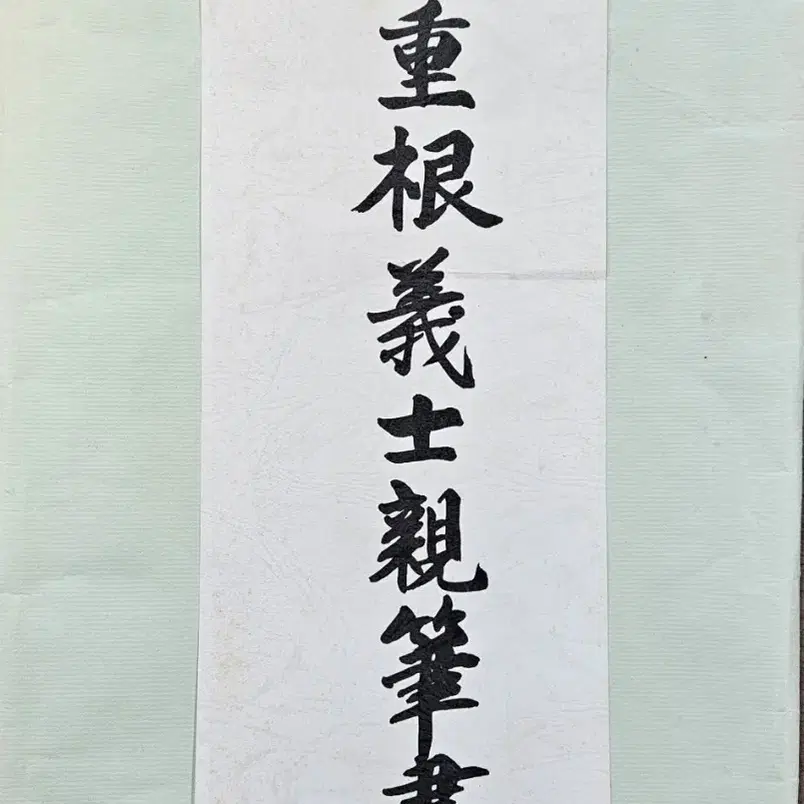 重根義士親筆書